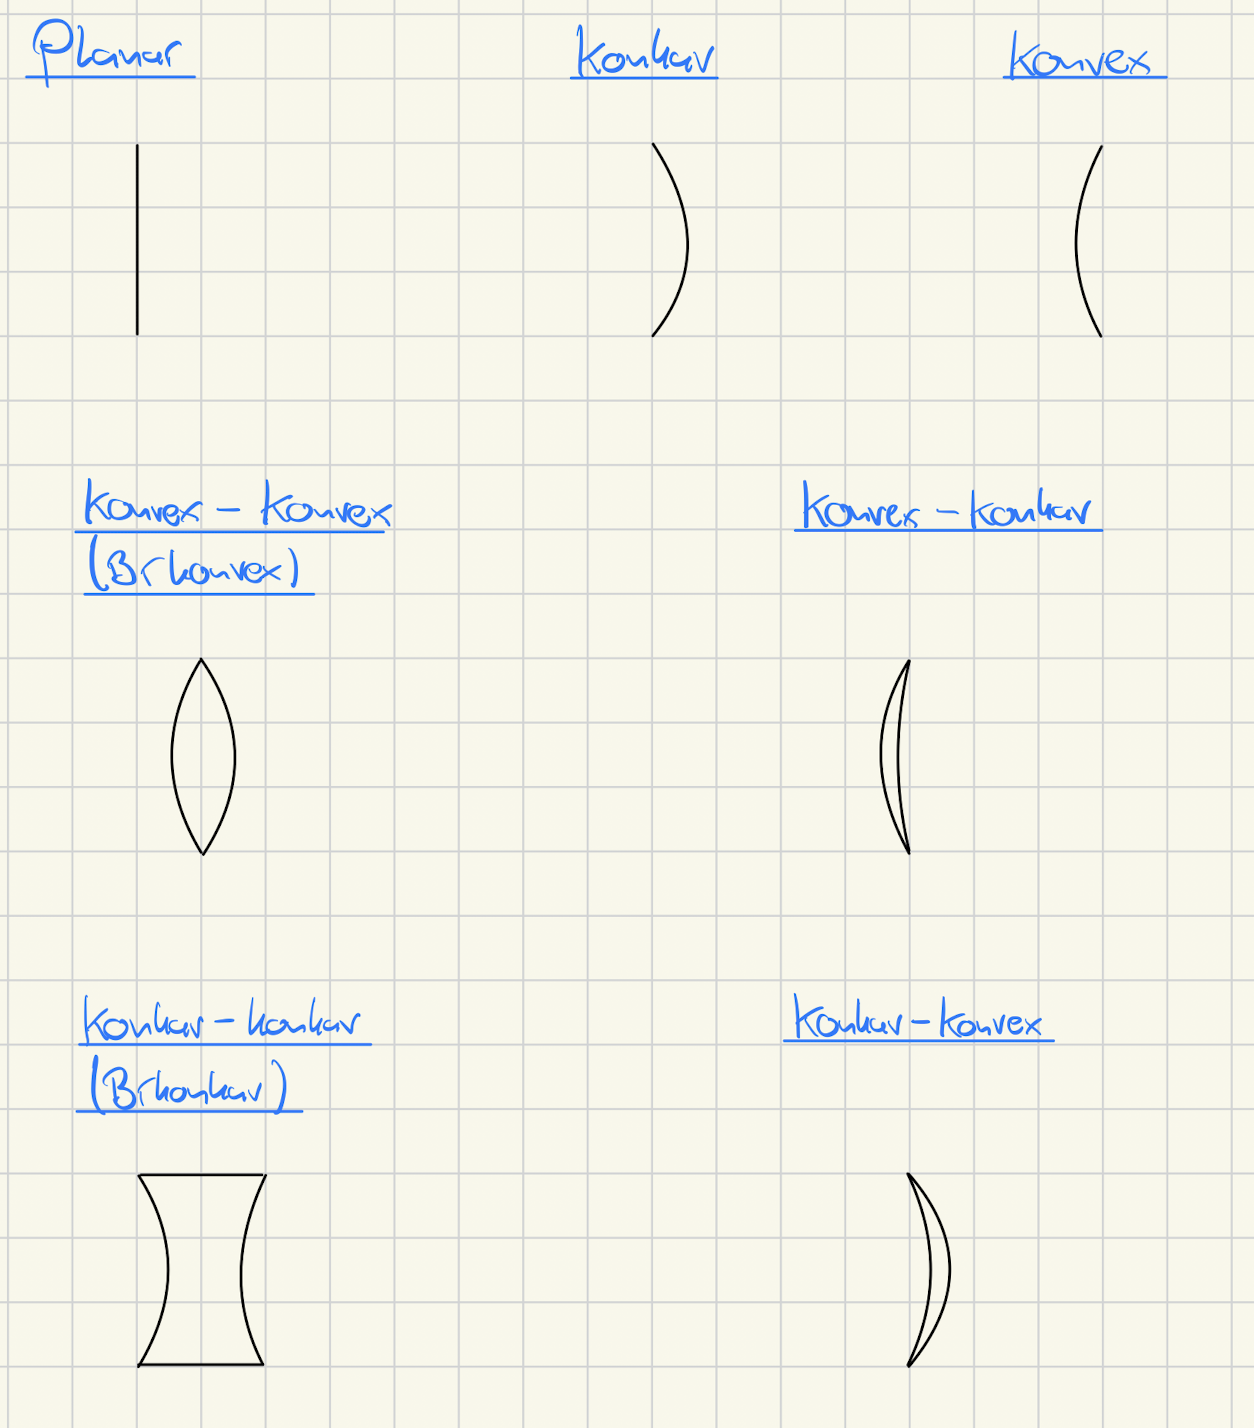 Planar
Konkav
Konvex
Konvex - Konvex
(Bikonvex)
Konvex - konkav
Konkav - konkav
(Bikonkav)
Konkav - konvex